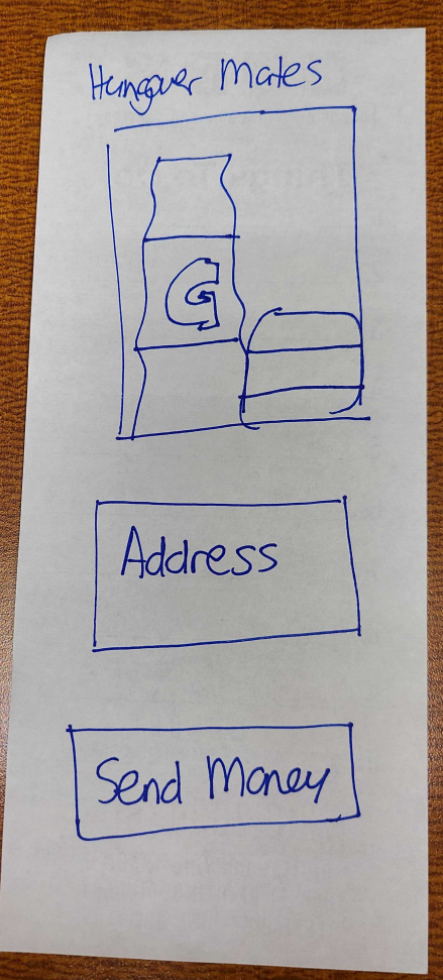 Hungover Mates
G
Address
Send Money